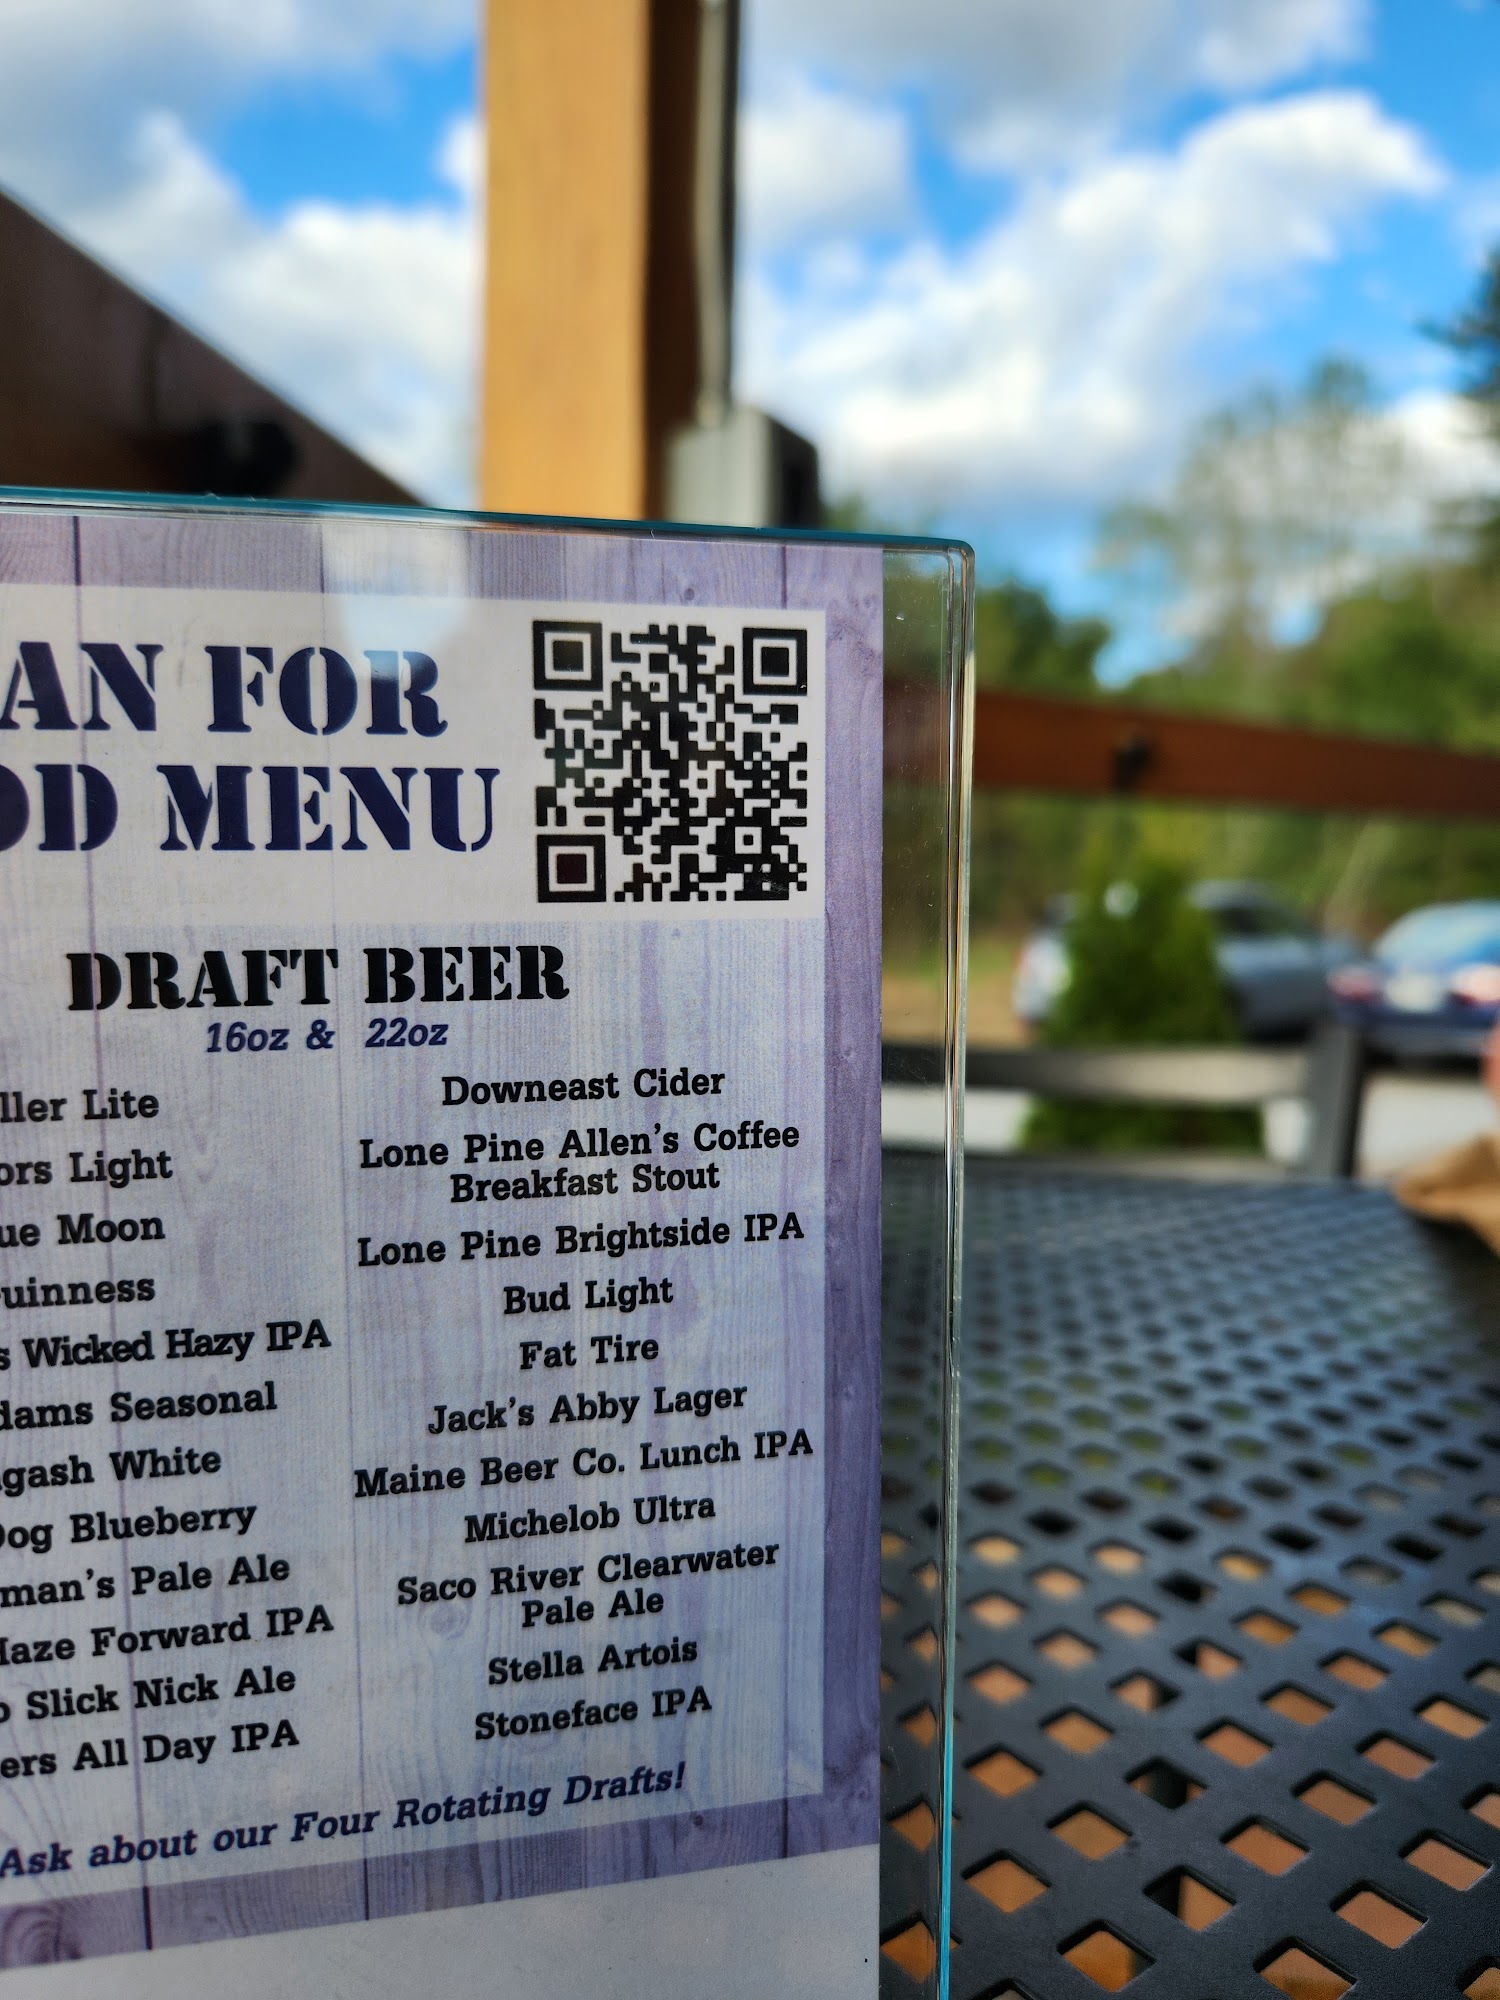 AN FOR
OD MENU
DRAFT BEER
16oz & 22oz
ller Lite
ors Light
ue Moon
uinness
s Wicked Hazy IPA
dams Seasonal
gash White
Dog Blueberry
man's Pale Ale
Haze Forward IPA
o Slick Nick Ale
ers All Day IPA
Downeast Cider
Lone Pine Allen's Coffee
Breakfast Stout
Lone Pine Brightside IPA
Bud Light
Fat Tire
Jack's Abby Lager
Maine Beer Co. Lunch IPA
Michelob Ultra
Saco River Clearwater
Pale Ale
Stella Artois
Stoneface IPA
Ask about our Four Rotating Drafts!